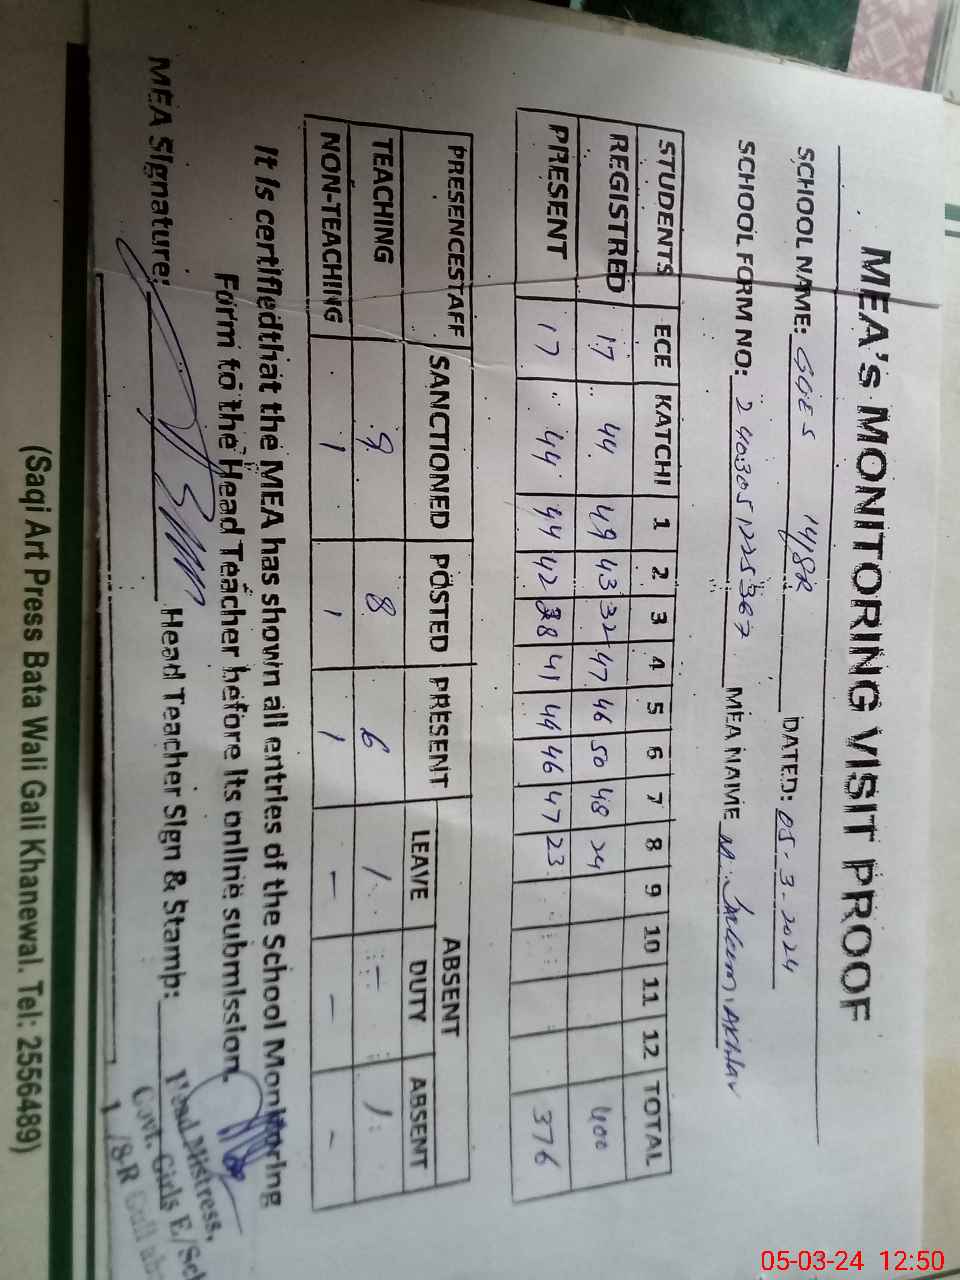 MEA's MONITORING VISIT PROOF
SCHOOL NAME: GGES 14/8R DATED: 05-3-2024
SCHOOL FORM NO: 2403051225367 MEA NAME M. Saleem Akhtar
STUDENTS ECE KATCHI 1 2 3 4 5 6 7 8 9 10 11 12 TOTAL
REGISTRED 17 44 49 43 32 47 46 50 48 24 400
PRESENT 17 44 44 42 28 41 44 46 47 23 376
PRESENCESTAFF SANCTIONED POSTED PRESENT ABSENT
LEAVE DUTY ABSENT
TEACHING 9 8 6 1 - 1
NON-TEACHING 1 1 1 - - -
It is certifiedthat the MEA has shown all entries of the School Monitoring
Form to the Head Teacher before its online submission.
MEA Signature: Head Teacher Sign & Stamp:
Head Mistress,
Govt. Girls E/Sch
/8-R
(Saqi Art Press Bata Wali Gali Khanewal. Tel: 2556489)
05-03-24 12:50